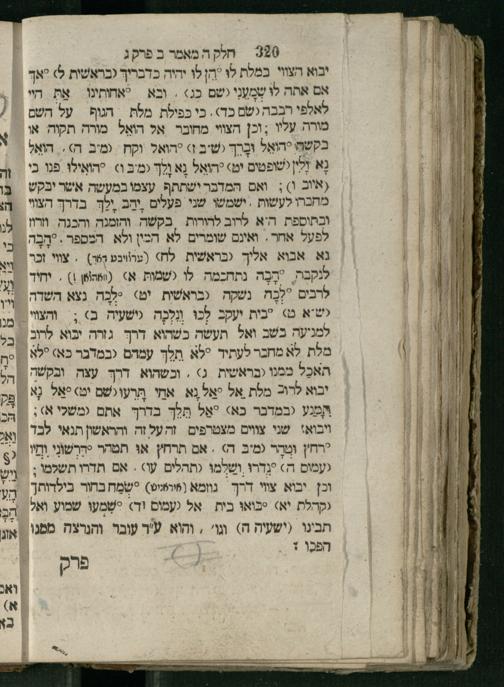 320 חלק ה מאמר ב פרק ג
יבוא הצווי במלת לוּ °הֵן לוּ יהיה כדבריךָ (בראשית ל) °אךְ
אם אתה לוּ שְמָעֵנִי (שם כג). ובא °אחותינו אַתְּ היי
לאלפי רבבה (שם כד). כי כפילת מלת הגוף על השם
מורה עליו ; וכן הצווי מחובר אל הואל מורה תקוה או
בקשה °הואל וּבָרֵךְ (ש״ב ז) °הואל וקח (מ״ב ה). הואל
נָא וְלִין (שופטים יט) °הואל נָא וָלֵךְ (מ״ב ו) °הואילו פנו בי
(איוב ו) ; ואם המדבר ישתתף עצמו במעשה אשר יבקש
מחברו לעשות. ישמשו שני פעלים יָהַב יָלַךְ בדרך הצווי
ובתוספת ה״א לרוב להורות בקשה והזמנה והכנה וזרוז
לפעל אחר. ואינם שומרים לא המין ולא המספר. °הָבָה
נא אבוא אליךְ (בראשית לח) צווי זכר
לנקבה. °הָבָה נתחכמה לו (שמות א) יחיד
לרבים °לְכָה נשקה (בראשית יט) °לְכָה נצא השדה
(ש״א ט) °בית יעקב לְכוּ וְנֵלְכָה (ישעיה ב) ; והצווי
למניעה בשב ואל תעשה כשהוא דרך גזרה יבוא לרוב
מלת לֹא מחבר לעתיד °לֹא תֵלֵךְ עמהם (במדבר כא) °לֹא
תאכל ממנו (בראשית ג). וכשהוא דרך עצה ובקשה
יבוא לרוב מלת אַל °אַל נָא אחי תָּרֵעוּ (שם יט) °אַל נָא
תִּמָּנַע (במדבר כא) °אַל תֵּלֵךְ בדרך אתם (משלי א) ;
ויבואו שני צווים מצטרפים זה על זה והראשון תנאי לבד
°רחץ וּטְהָר (מ״ב ה). אם תרחץ אז תטהר °דִּרְשׁוּנִי וִחְיוּ
(עמוס ה) °נִדֲרוּ וְשַׁלְּמוּ (תהלים עו). אם תדרו תשלמו ;
וכן יבוא צווי דרך גוזמא °שְׂמַח בחור בילדותך
(קהלת יא) °בואו בית אל (עמוס יד) °שִׁמְעוּ שמוע ואל
תבינו (ישעיה ה) וגו׳, והוא ע״ד עובר והנרצה ממנו
הפכו :
פרק